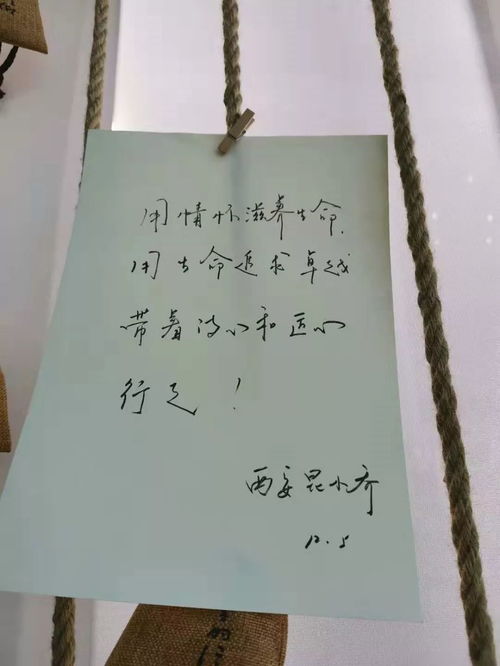 用情怀滋养生命,
用生命追求卓越
带着诗心和匠心
行走!
西安昆小乔
12.5
的